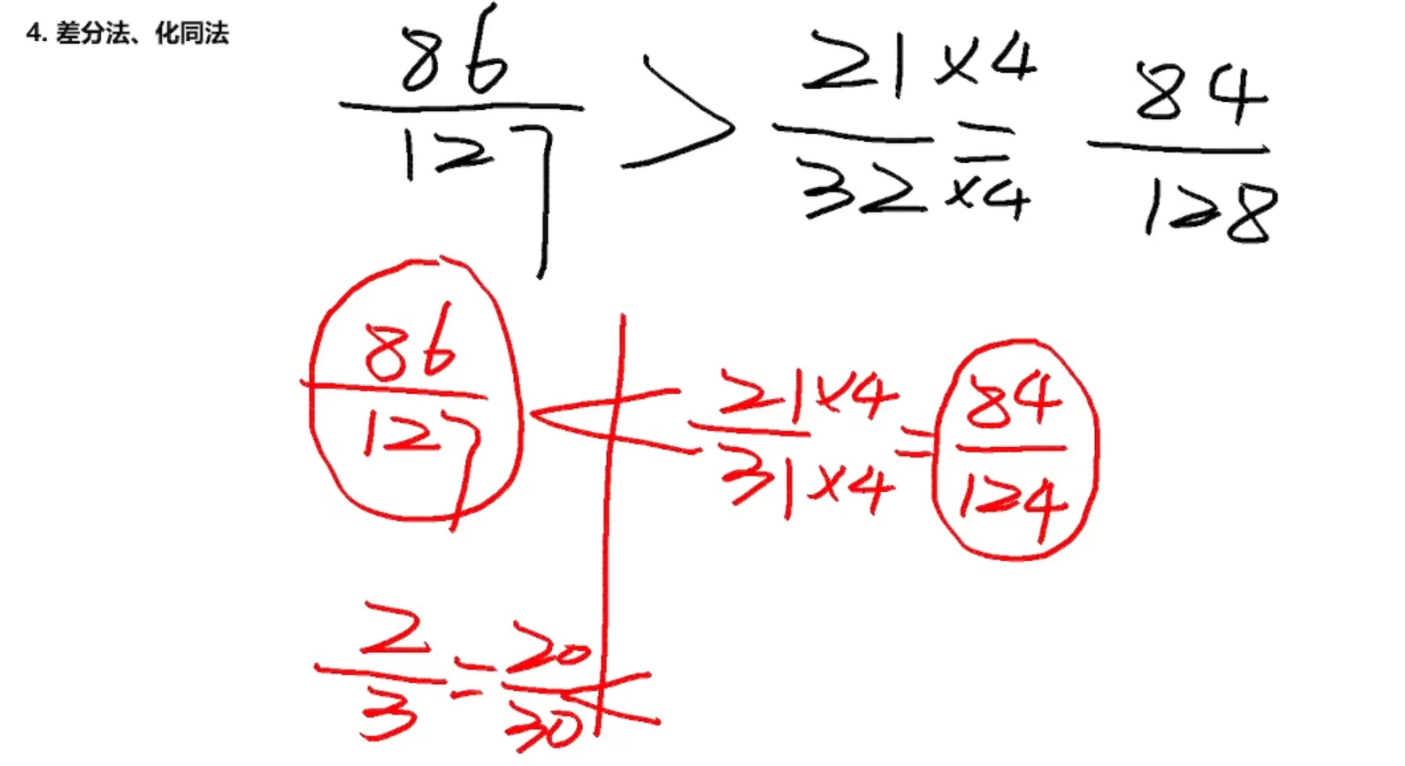 4. 差分法、化同法
86/127 > 21×4/32×4 = 84/128
86/127 < 21×4/31×4 = 84/124
2/3 = 20/30 <